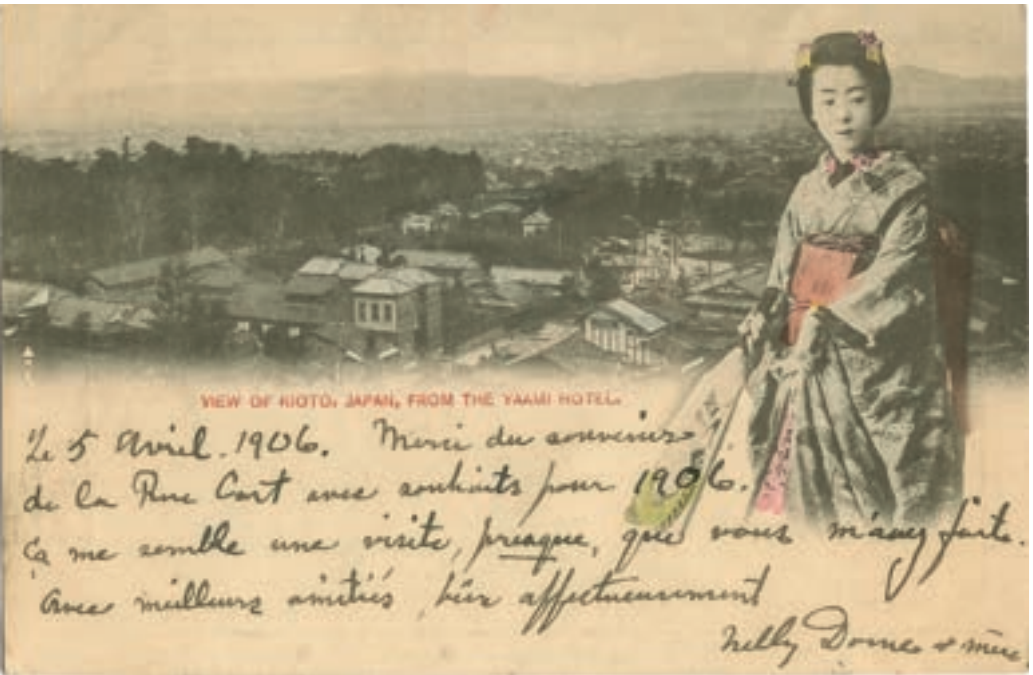 VIEW OF KIOTO, JAPAN, FROM THE YAAMI HOTEL.
Le 5 Avril. 1906. Merci du souvenir
de la Rue Cart avec souhaits pour 1906.
Ça me semble une visite, presque, que vous m'avez faite.
Avec meilleurs amitiés, bien affectueusement
Nelly Dome & mère